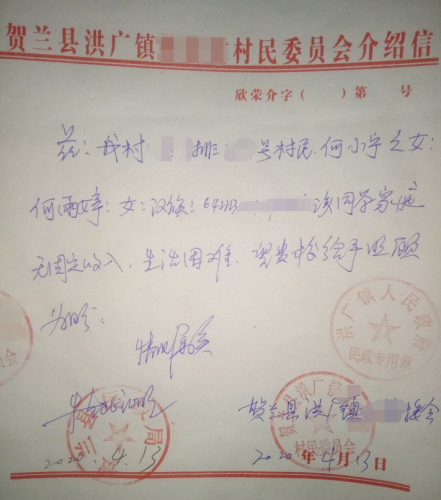 贺兰县洪广镇 村民委员会介绍信
欣荣介字( )第 号
兹:我村 排 号村民,何小宁之女:
何雨婷,女:汉族:642113 该同学家庭
无固定收入,生活困难,望贵校给予照顾
为盼。
情况属实
贺兰县洪广镇 村委会
2020.4.13
2020年4月13日
洪广镇人民政府
民政专用章
村民委员会